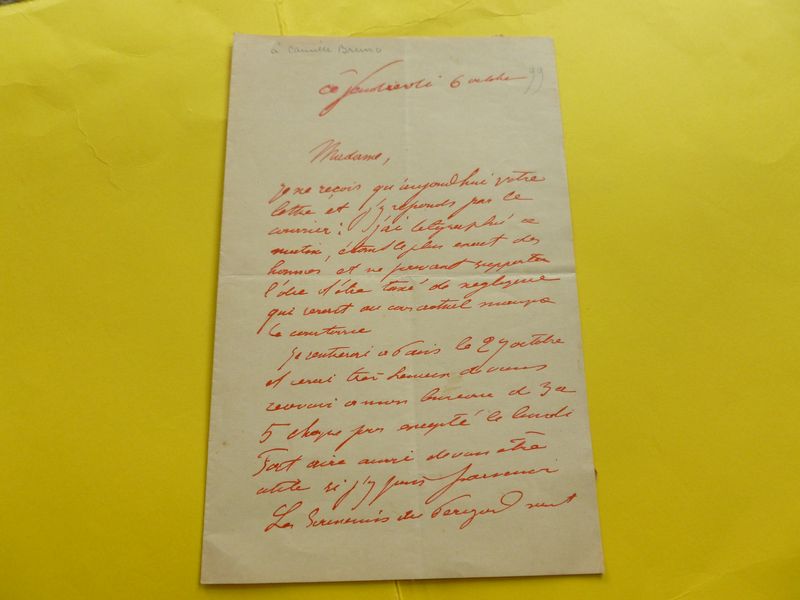 à Camille Bruno
ce Vendredi 6 octobre 99
Madame,
Je ne reçois qu'aujourd'hui votre
lettre et j'y réponds par ce
courrier : j'ai télégraphié ce
matin, étant le plus exact des
hommes et ne pouvant supporter
l'idée d'être taxé de négligence
qui serait au cas actuel manque
de courtoisie
Je rentrerai à Paris le 27 octobre
et serai très heureux de vous
recevoir à mon bureau de 3 à
5 chaque jour excepté le lundi
Fort aise aussi de vous être
utile si j'y puis parvenir
Les de Périgord sont